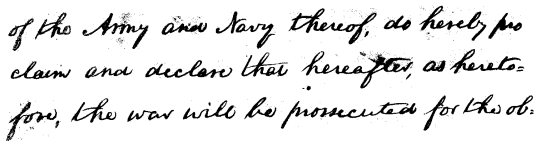 of the Army and Navy thereof, do hereby pro
claim and declare that hereafter, as hereto=
fore, the war will be prossecuted for the ob=